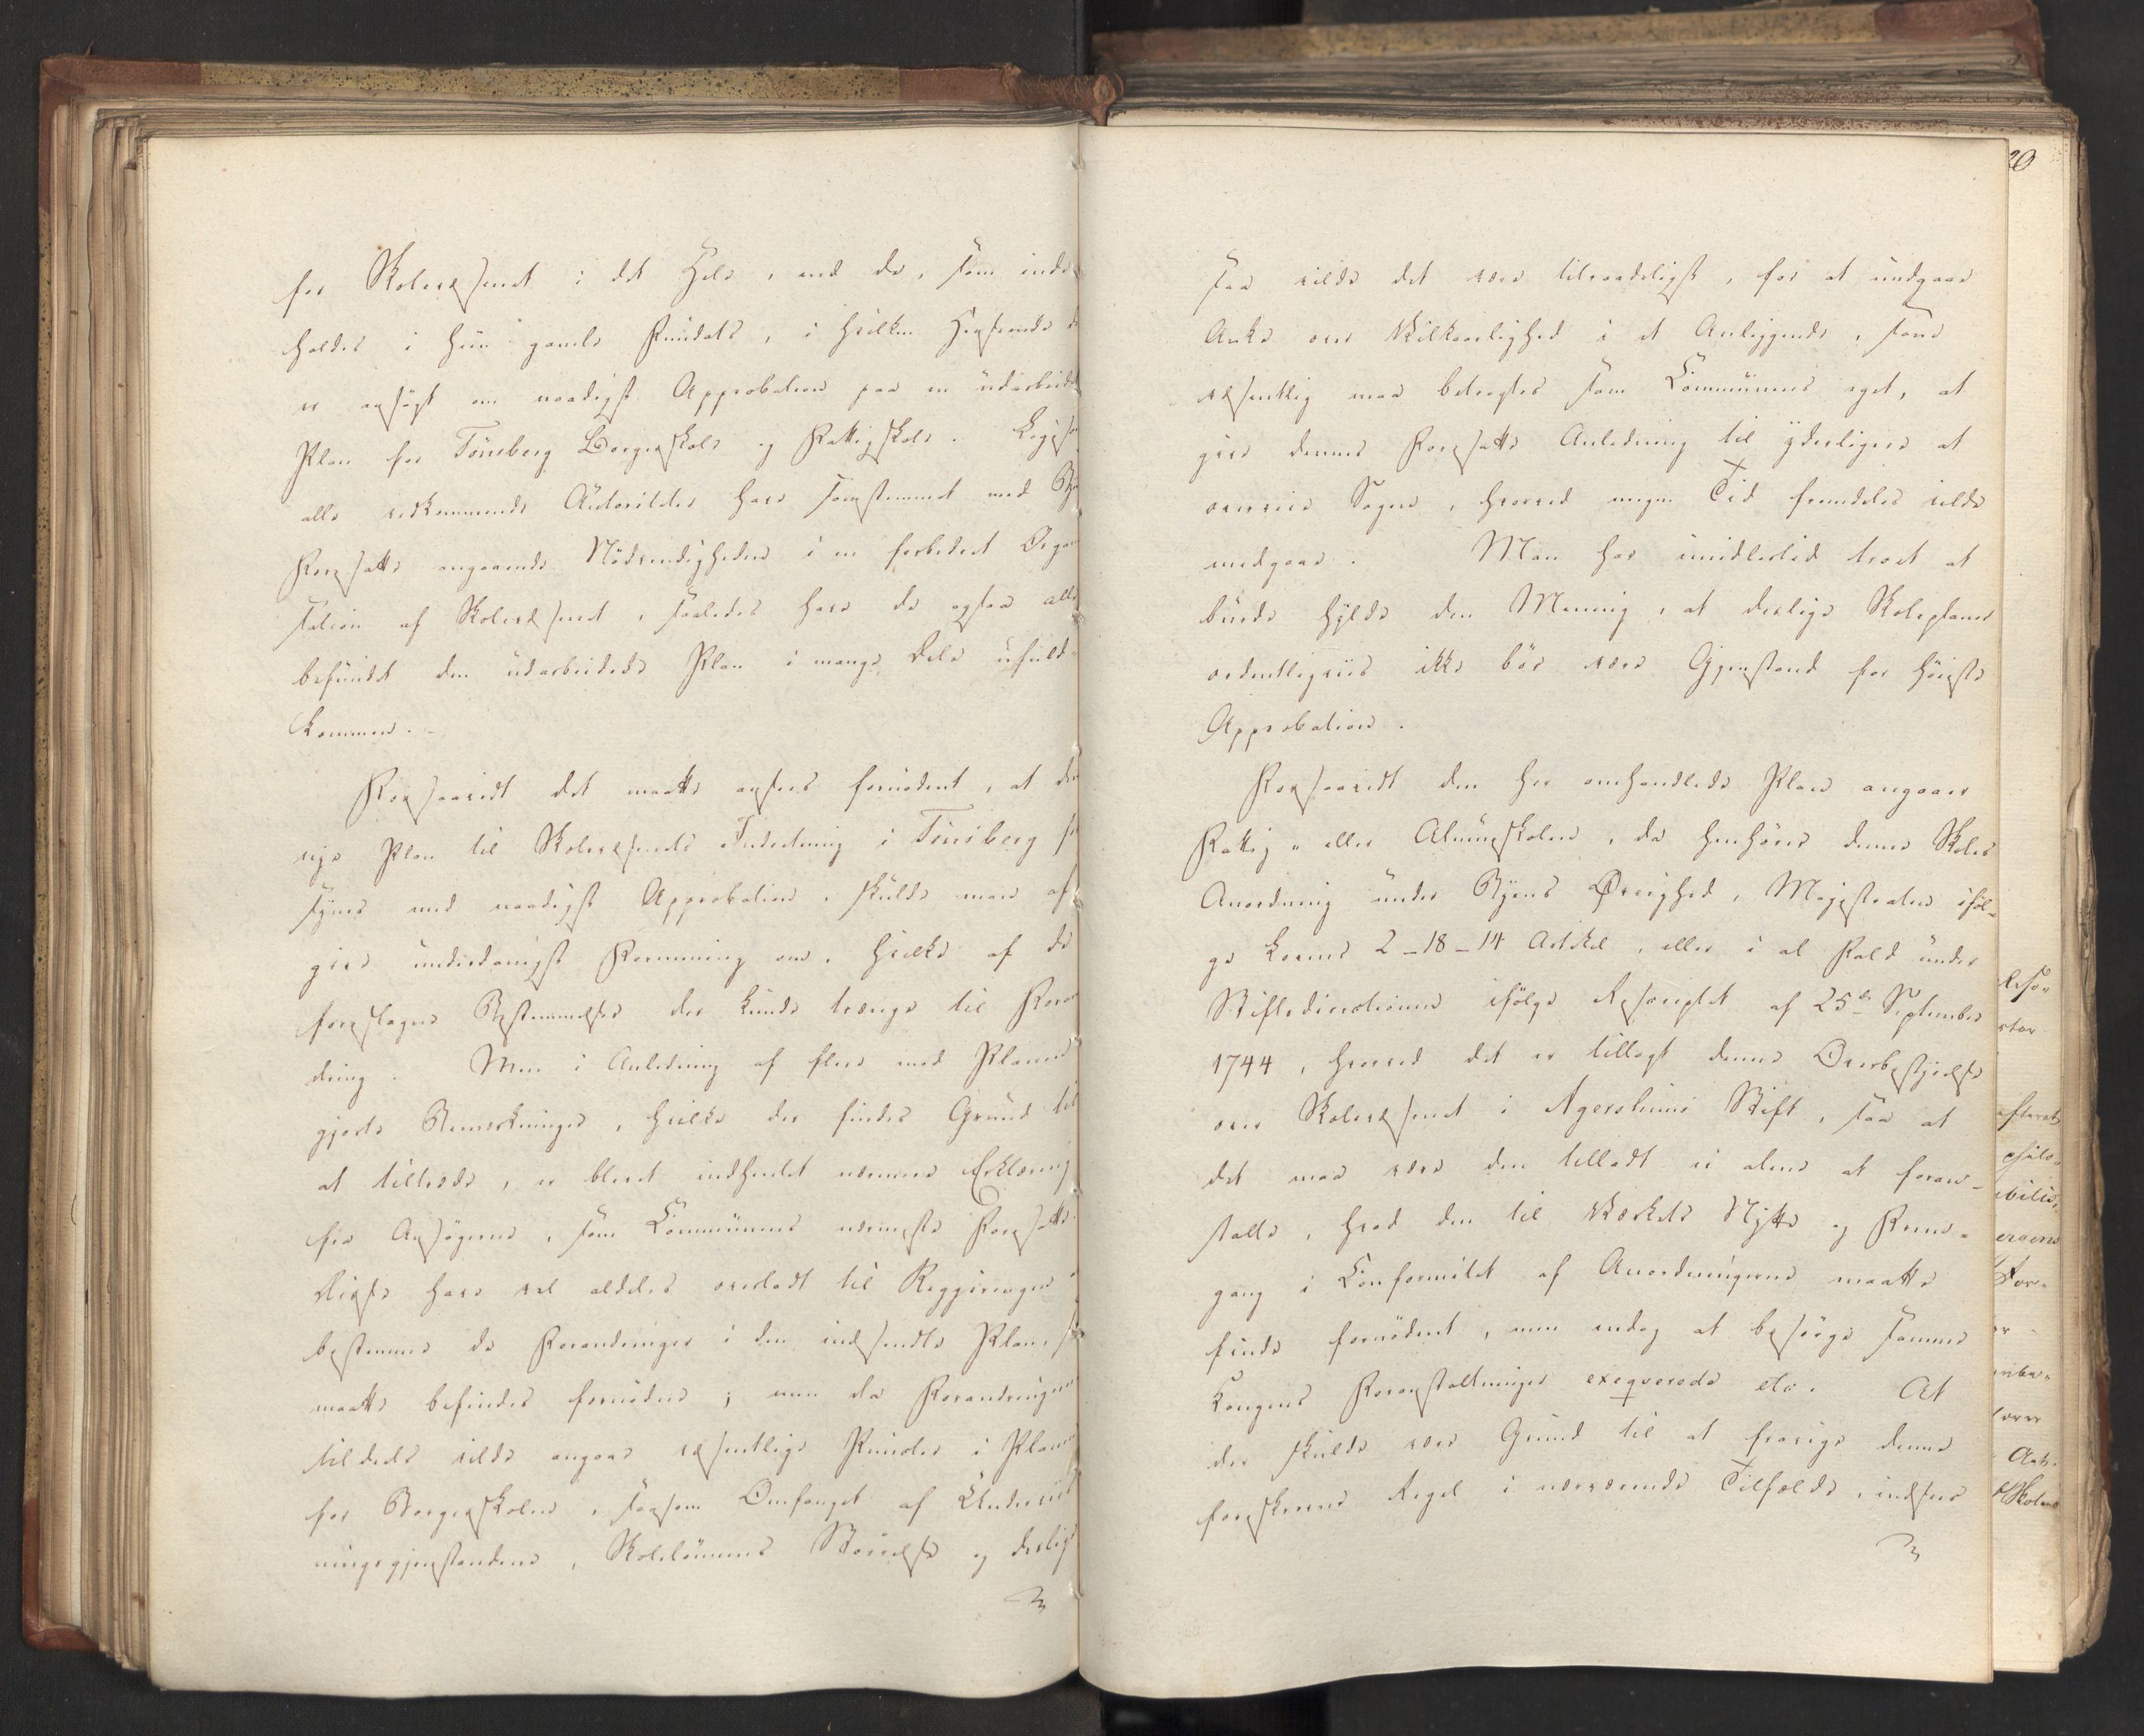 for Skolevæsenet i det Hele, end de, som inde-
holdes i hiin gamle Fundats, i hvilken Henseende d
er ansøgt om naadigst Approbation paa en udarbeidet
Plan for Tönsberg Borgerskole og Fattigskole. Ligesom
alle vedkommende Autoriteter have samstemmet med By
Foresatte angaaende Nödvendigheden i en forbedret Organi
sation af Skolevæsenet, saaledes have de ogsaa alle
befundet den udarbeidede Plan i mange Dele ufuld-
kommen.
Forsaavidt det maatte ansees fornödent, at den
nye Plan til Skolevæsenets Indretning i Tönsberg for
synes med naadigst Approbation, skulde man af
give underdanigst Formening om, hvilke af de
foreslagne Bestemmelser der kunde trænge til Foran
dring. Men i Anledning af flere mod Planen
gjorte Bemærkninger, hvilke der findes Grund til
at tiltræde, er blevet indhentet nærmere Erklæring
fra Ansögerne, som Communens nærmeste Foresatte.
Disse have vel aldeles overladt til Regjeringen
bestemme de Forandringer i den indsendte Plan, so
maatte befindes fornödne; men da Forandringerne
tildeels vilde angaae væsentlige Punkter i Planen
for Borgerskolen, saasom Omfanget af Underviis
ningsgjenstandene, Skolelönnens Störrelse og deslige
saa vilde det være tilraadeligst, for at undgaae
Anke over Vilkaarlighed i et Anliggende, som
væsentlig maa betragtes som Communens eget, at
give dennes Foresatte Anledning til yderligere at
overveie Sagen, hvorved megen Tid fremdeles vilde
medgaae. Man har imidlertid troet at
burde hylde den Mening, at deslige Skoleplaner
ordentligviis ikke bör være Gjenstand for höieste
Approbation.
Forsaavidt den her omhandlede Plan angaaer
Fattig- eller Almueskolen, da henhörer denne Skoles
Anordning under Byens Øvrighed, Magistraten iföl-
ge Lovens 2-18-14 Artikel, eller i al Fald under
Stiftsdirectionen ifölge Rescriptet af 25de September
1744, hvorved det er tillagt denne Overbestyrelse
over Skolevæsenet i Agershuus Stift, saa at
det maa være den tilladt ei alene at foran-
stalte, hvad den til Værkets Nytte og Frem-
gang i Conformitet af Anordningerne maatte
finde fornödent, men endog at besörge samme
Kongens Foranstaltninger exeqverede etc. At
der skulde være Grund til at fravige denne
foreskrevne Regel i nærværende Tilfælde, indsees
20